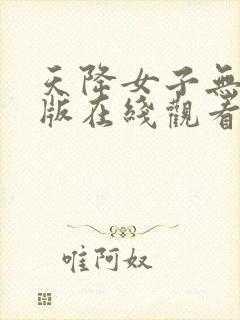 天降女子無
版在綫觀看
唯阿奴